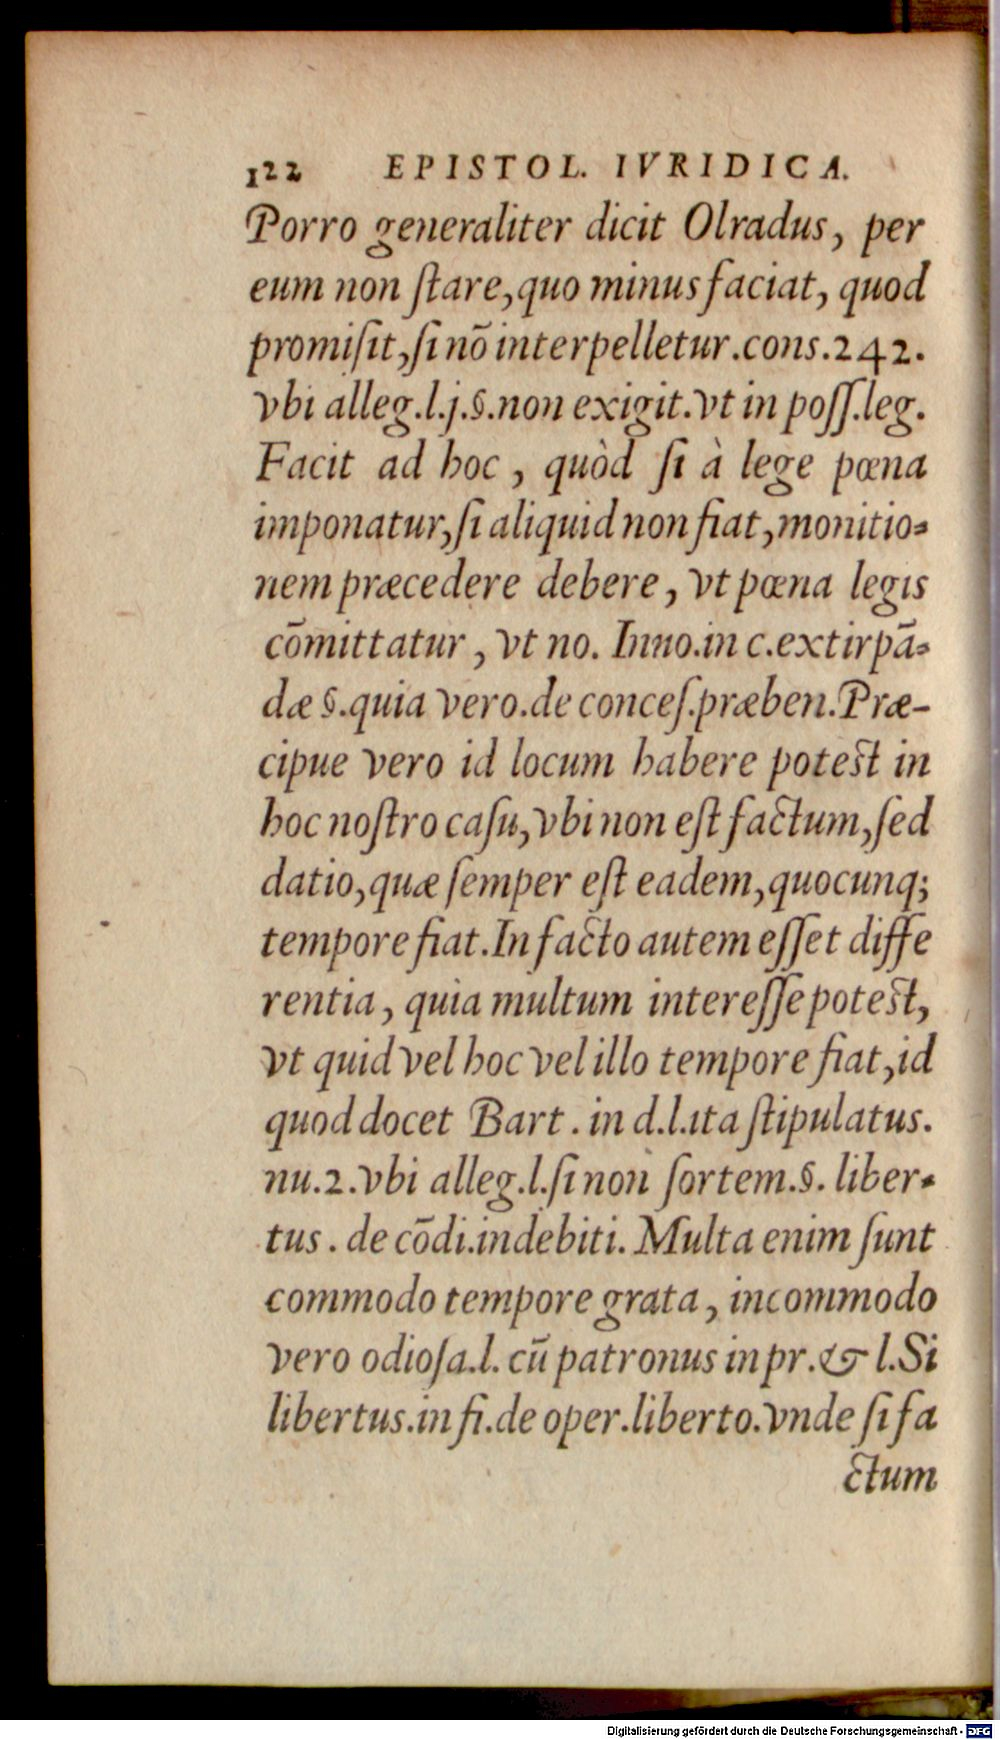 122 EPISTOL. IVRIDICA.
Porro generaliter dicit Olradus, per
eum non ſtare, quo minus faciat, quod
promiſit, ſi nõ interpelletur. cons. 242.
vbi alleg. l. j. §. non exigit. vt in poſſ. leg.
Facit ad hoc, quòd ſi à lege pœna
imponatur, ſi aliquid non fiat, monitio-
nem præcedere debere, vt pœna legis
cõmittatur, vt no. Inno. in c. extirpã-
dæ §. quia vero. de conceſ. præben. Præ-
cipue vero id locum habere poteſt in
hoc noſtro caſu, vbi non eſt factum, ſed
datio, quæ ſemper eſt eadem, quocunq;
tempore fiat. In facto autem eſſet diffe
rentia, quia multum intereſſe poteſt,
vt quid vel hoc vel illo tempore fiat, id
quod docet Bart. in d. l. ita ſtipulatus.
nu. 2. vbi alleg. l. ſi non ſortem. §. liber-
tus. de cõdi. indebiti. Multa enim ſunt
commodo tempore grata, incommodo
vero odioſa. l. cũ patronus in pr. & l. Si
libertus. in fi. de oper. liberto. vnde ſi fa
ctum
Digitalisierung gefördert durch die Deutsche Forschungsgemeinschaft - DFG